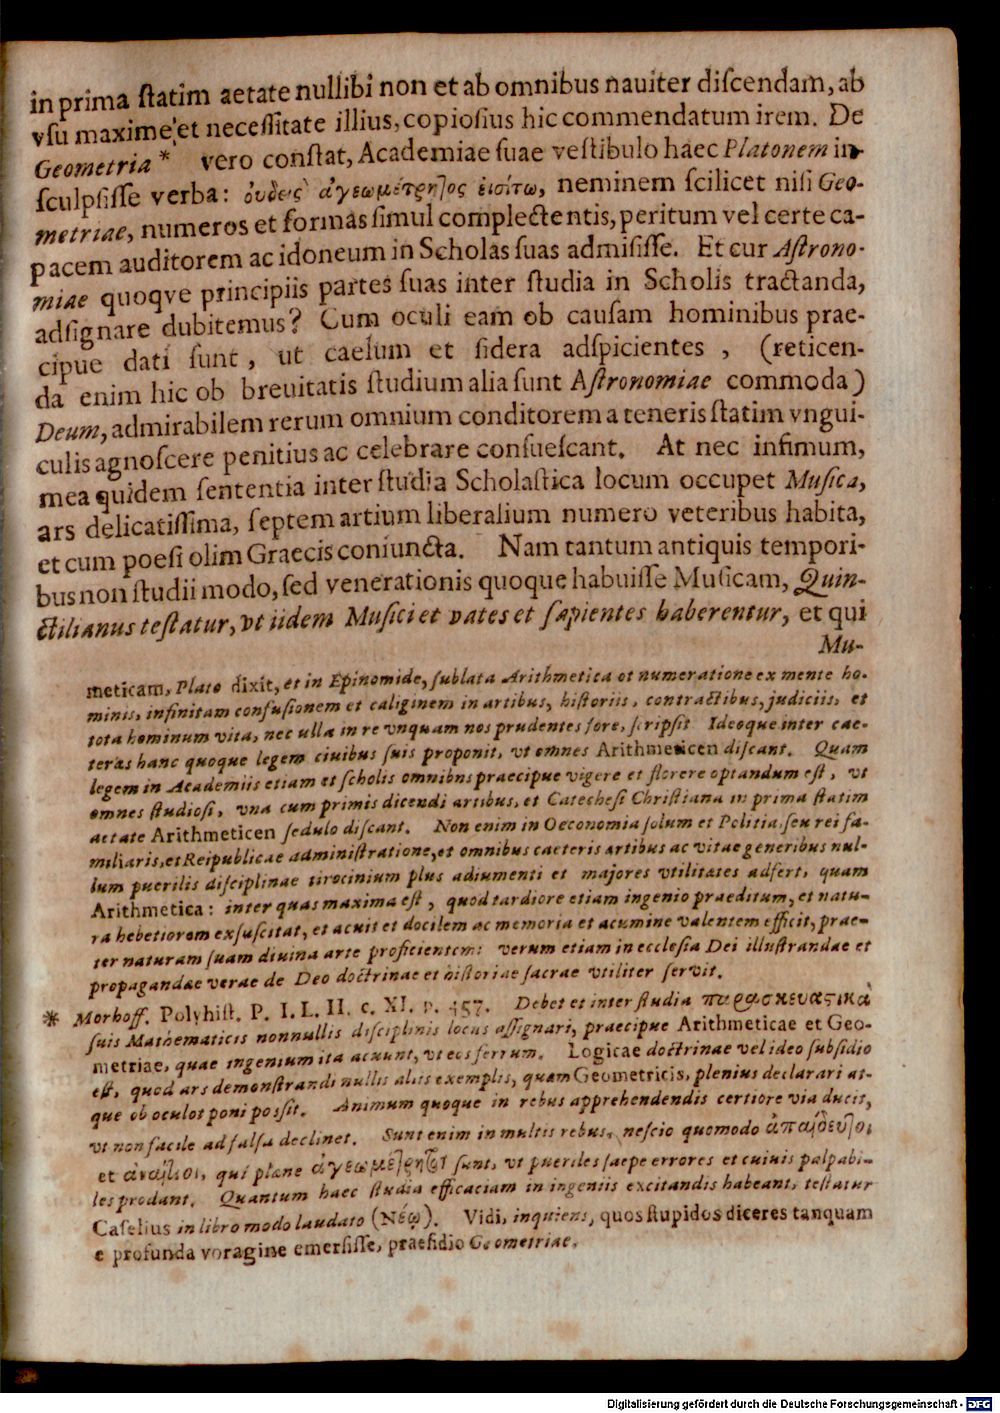 in prima ſtatim aetate nullibi non et ab omnibus nauiter diſcendam, ab
vſu maxime et neceſſitate illius, copioſius hic commendatum irem. De
Geometria * vero conſtat, Academiae ſuae veſtibulo haec Platonem in-
ſculpſiſſe verba: ἀγεωμέτρητος εἰσίτω, neminem ſcilicet niſi Geo-
metriae, numeros et formas ſimul complectentis, peritum vel certe ca-
pacem auditorem ac idoneum in Scholas ſuas admiſiſſe. Et cur Aſtrono-
miae quoqve principiis partes ſuas inter ſtudia in Scholis tractanda,
adſignare dubitemus? Cum oculi eam ob cauſam hominibus prae-
cipue dati ſunt, ut caelum et ſidera adſpicientes, (reticen-
da enim hic ob breuitatis ſtudium alia ſunt Aſtronomiae commoda)
Deum, admirabilem rerum omnium conditorem a teneris ſtatim vngui-
culis agnoſcere penitius ac celebrare conſueſcant. At nec infimum,
mea quidem ſententia inter ſtudia Scholaſtica locum occupet Muſica,
ars delicatiſſima, ſeptem artium liberalium numero veteribus habita,
et cum poeſi olim Graecis coniuncta. Nam tantum antiquis tempori-
bus non ſtudii modo, ſed venerationis quoque habuiſſe Muſicam, Quin-
ctilianus teſtatur, vt iidem Muſici et vates et ſapientes haberentur, et qui
Mu-
meticam, Plato dixit, et in Epinomide, ſublata Arithmetica et numeratione ex mente ho-
minis, infinitam confuſionem et caliginem in artibus, hiſtoriis, contractibus, judiciis, et
tota hominum vita, nec ulla in re vnquam nos prudentes fore, ſcripſit Ideoque inter cae-
teras hanc quoque legem ciuibus ſuis proponit, vt omnes Arithmeticen diſcant. Quam
legem in Academiis etiam et ſcholis omnibns praecipue vigere et florere optandum eſt, vt
omnes ſtudioſi, vna cum primis dicendi artibus, et Catecheſi Chriſtiana in prima ſtatim
aetate Arithmeticen ſedulo diſcant. Non enim in Oeconomia ſolum et Politia, ſeu rei fa-
miliaris, et Reipublicae adminiſtratione, et omnibus caeteris artibus ac vitae generibus nul-
lum puerilis diſciplinae tirocinium plus adiumenti et majores vtilitates adfert, quam
Arithmetica: inter quas maxima eſt, quod tardiore etiam ingenio praeditum, et natu-
ra hebetiorem exſuſcitat, et acuit et docilem ac memoria et acumine valentem efficit, prae-
ter naturam ſuam diuina arte proficientem: verum etiam in eccleſia Dei illuſtrandae et
propagandae verae de Deo doctrinae et hiſtoriae ſacrae vtiliter ſervit.
* Morhoff. Polyhiſt. P. I. L. II. c. XI. p. 457. Debet et inter ſtudia παρασκευαστικὰ
ſuis Mathematicis nonnullis diſciplinis locus aſſignari, praecipue Arithmeticae et Geo-
metriae, quae ingenium ita acuunt, vt cos ferrum. Logicae doctrinae vel ideo ſubſidio
eſt, quod ars demonſtrandi nullis aliis exemplis, quam Geometricis, plenius declarari at-
que ob oculot poni poſſit. Animum quoque in rebus apprehendendis certiore via ducit,
vt non facile ad falſa declinet. Sunt enim in multis rebus, neſcio quomodo ἀπαίδευτοι
et ἀναίτιοι, qui plane ἀγεωμέτρητοι ſunt, vt pueriles ſaepe errores et cuiuis palpabi-
les prodant. Quantum haec ſtudia efficaciam in ingeniis excitandis habeant, teſtatur
Caſelius in libro modo laudato (Νέῳ). Vidi, inquiens, quos ſtupidos diceres tanquam
e profunda voragine emerſiſſe, praeſidio Geometriae.
Digitalisierung gefördert durch die Deutsche Forschungsgemeinschaft - DFG